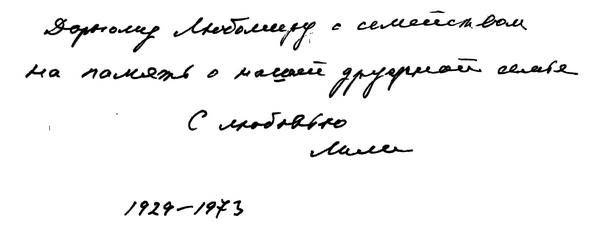 Дорогому Любомиру с семейством
на память о нашей дружной семье
С любовью
Лили
1929–1973